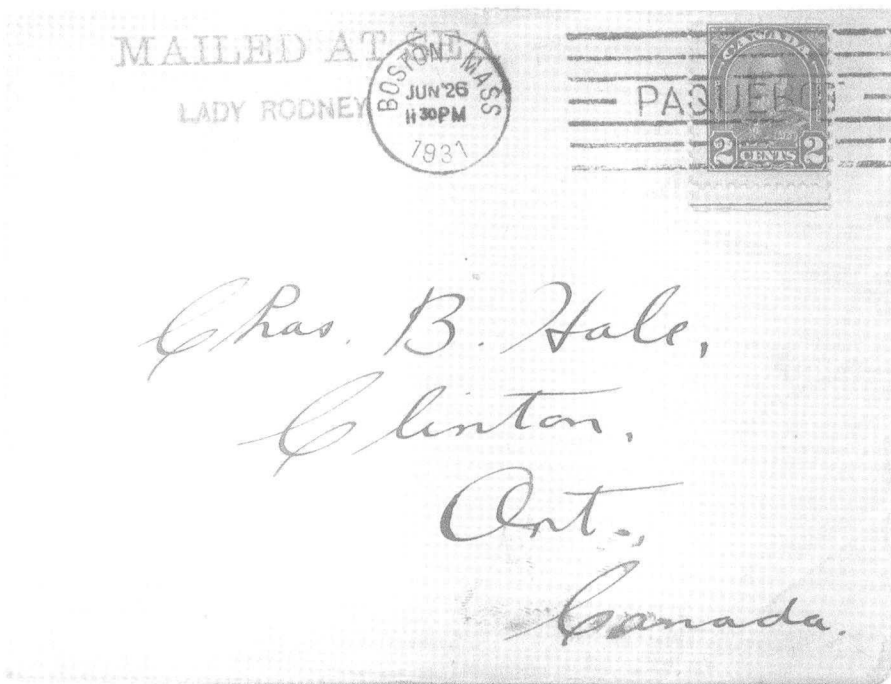 MAILED AT SEA
LADY RODNEY
BOSTON MASS
JUN 26
11 30 PM
1931
PAQUEBOT
CANADA
2 CENTS 2
Chas. B. Hale,
Clinton,
Ont.,
Canada.